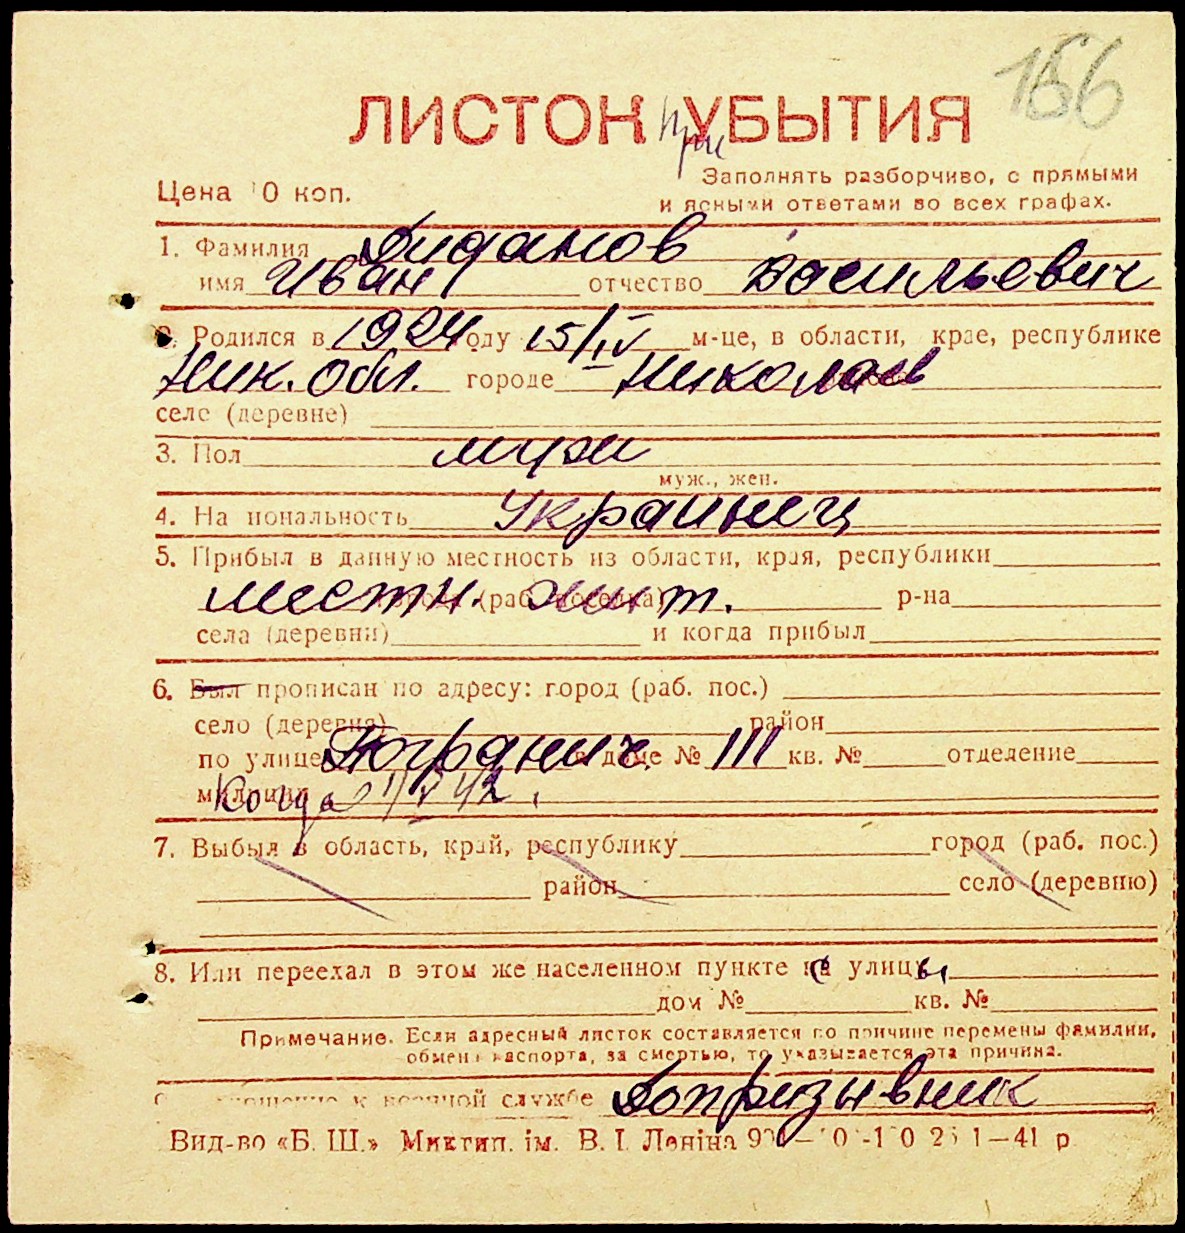 166
ЛИСТОК при УБЫТИЯ
Цена 0 коп.
Заполнять разборчиво, с прямыми
и ясными ответами во всех графах.
1. Фамилия Диданов
имя Иван отчество Васильевич
2. Родился в 1924 году 15/IV м-це, в области, крае, республике
Ник. обл. городе Николаев
селе (деревне)
3. Пол муж
муж., жен.
4. Национальность Украинец
5. Прибыл в данную местность из области, края, республики
местн. жит. р-на
села (деревни) и когда прибыл
6. Был прописан по адресу: город (раб. пос.)
село (деревня) район
по улице Погранич. в доме № 111 кв. № отделение
милиции Когда 1/V 42.
7. Выбыл в область, край, республику город (раб. пос.)
район село (деревню)
8. Или переехал в этом же населенном пункте с улицы,
дом № кв. №
Примечание. Если адресный листок составляется по причине перемены фамилии,
обмена паспорта, за смертью, то указывается эта причина.
к военной службе Допризывник
Вид-во «Б. Ш.» Миктип. ім. В. І. Леніна 1—41 р